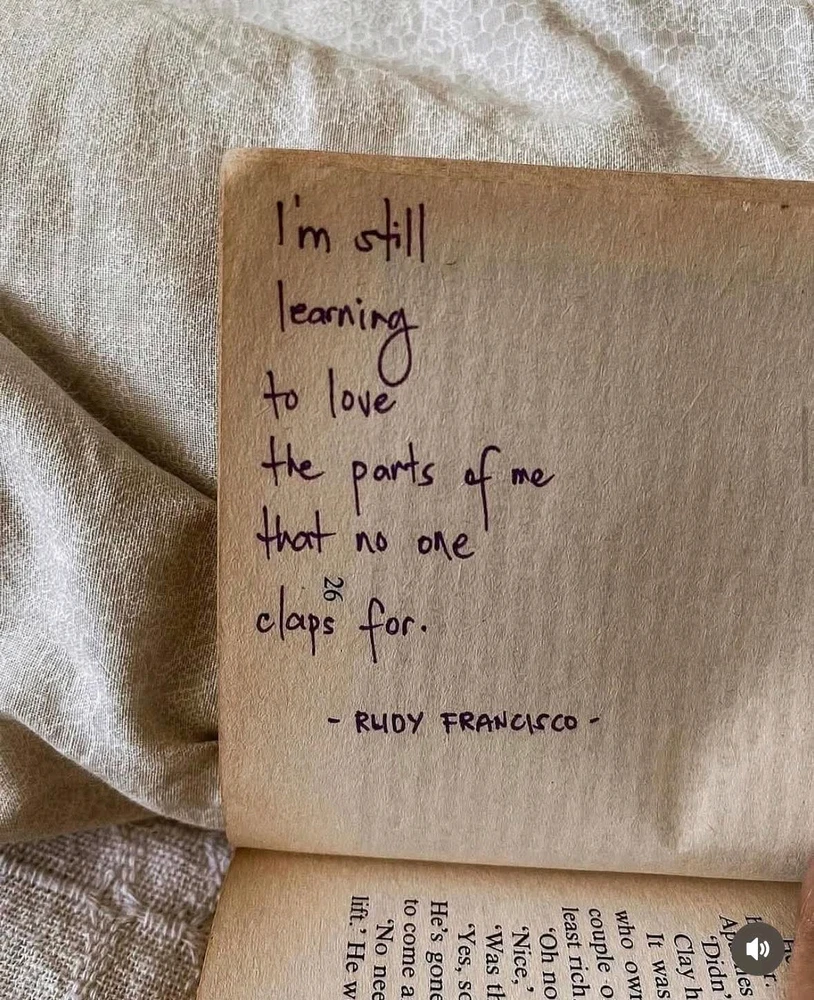 I'm still
learning
to love
the parts of me
that no one
26
claps for.
- RUDY FRANCISCO -
It was
who own
couple o
least rich
'Oh no
'Nice,'
'Was th
'Yes, so
He's gone
to come a
'No nee
lift.' He w